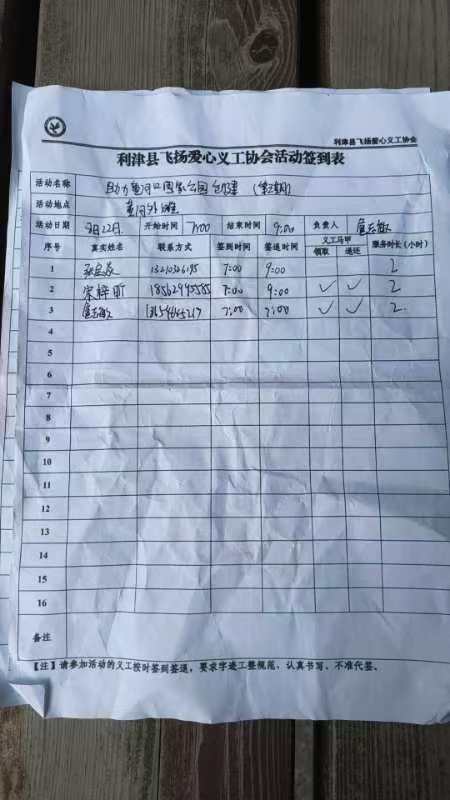 利津县飞扬爱心义工协会
利津县飞扬爱心义工协会活动签到表
活动名称 助力黄河口国家公园创建
活动地点 黄河外滩
活动日期 月22日 开始时间 7:00 结束时间 9:00 负责人
序号 真实姓名 联系方式 签到时间 签退时间 义工马甲 服务时长（小时）
领取 退还
1 7:00 9:00 2
2 宋梓昕 7:00 9:00 ✓ ✓ 2
3 7:00 ✓ ✓ 2
4
5
6
7
8
9
10
11
12
13
14
15
16
备注
【注】请参加活动的义工按时签到签退，要求字迹工整规范、认真书写、不准代签。